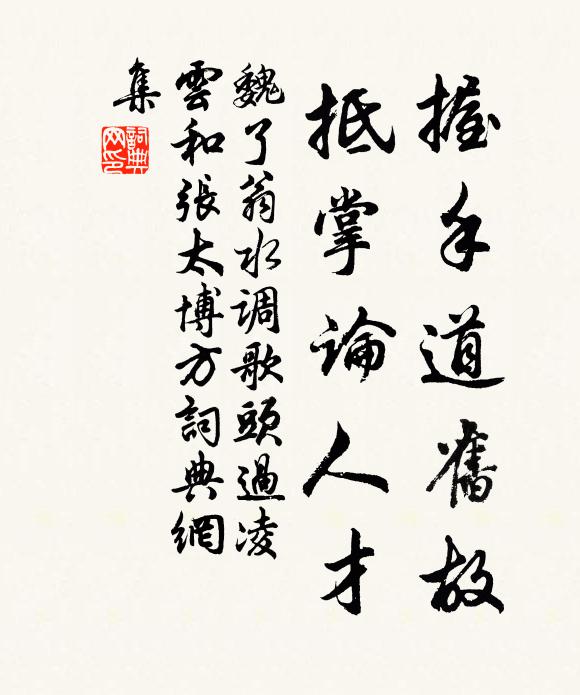 握手道舊故
抵掌論人才
魏了翁水调歌頭過凌
雲和張太博方詞典網
集
詞典
网印